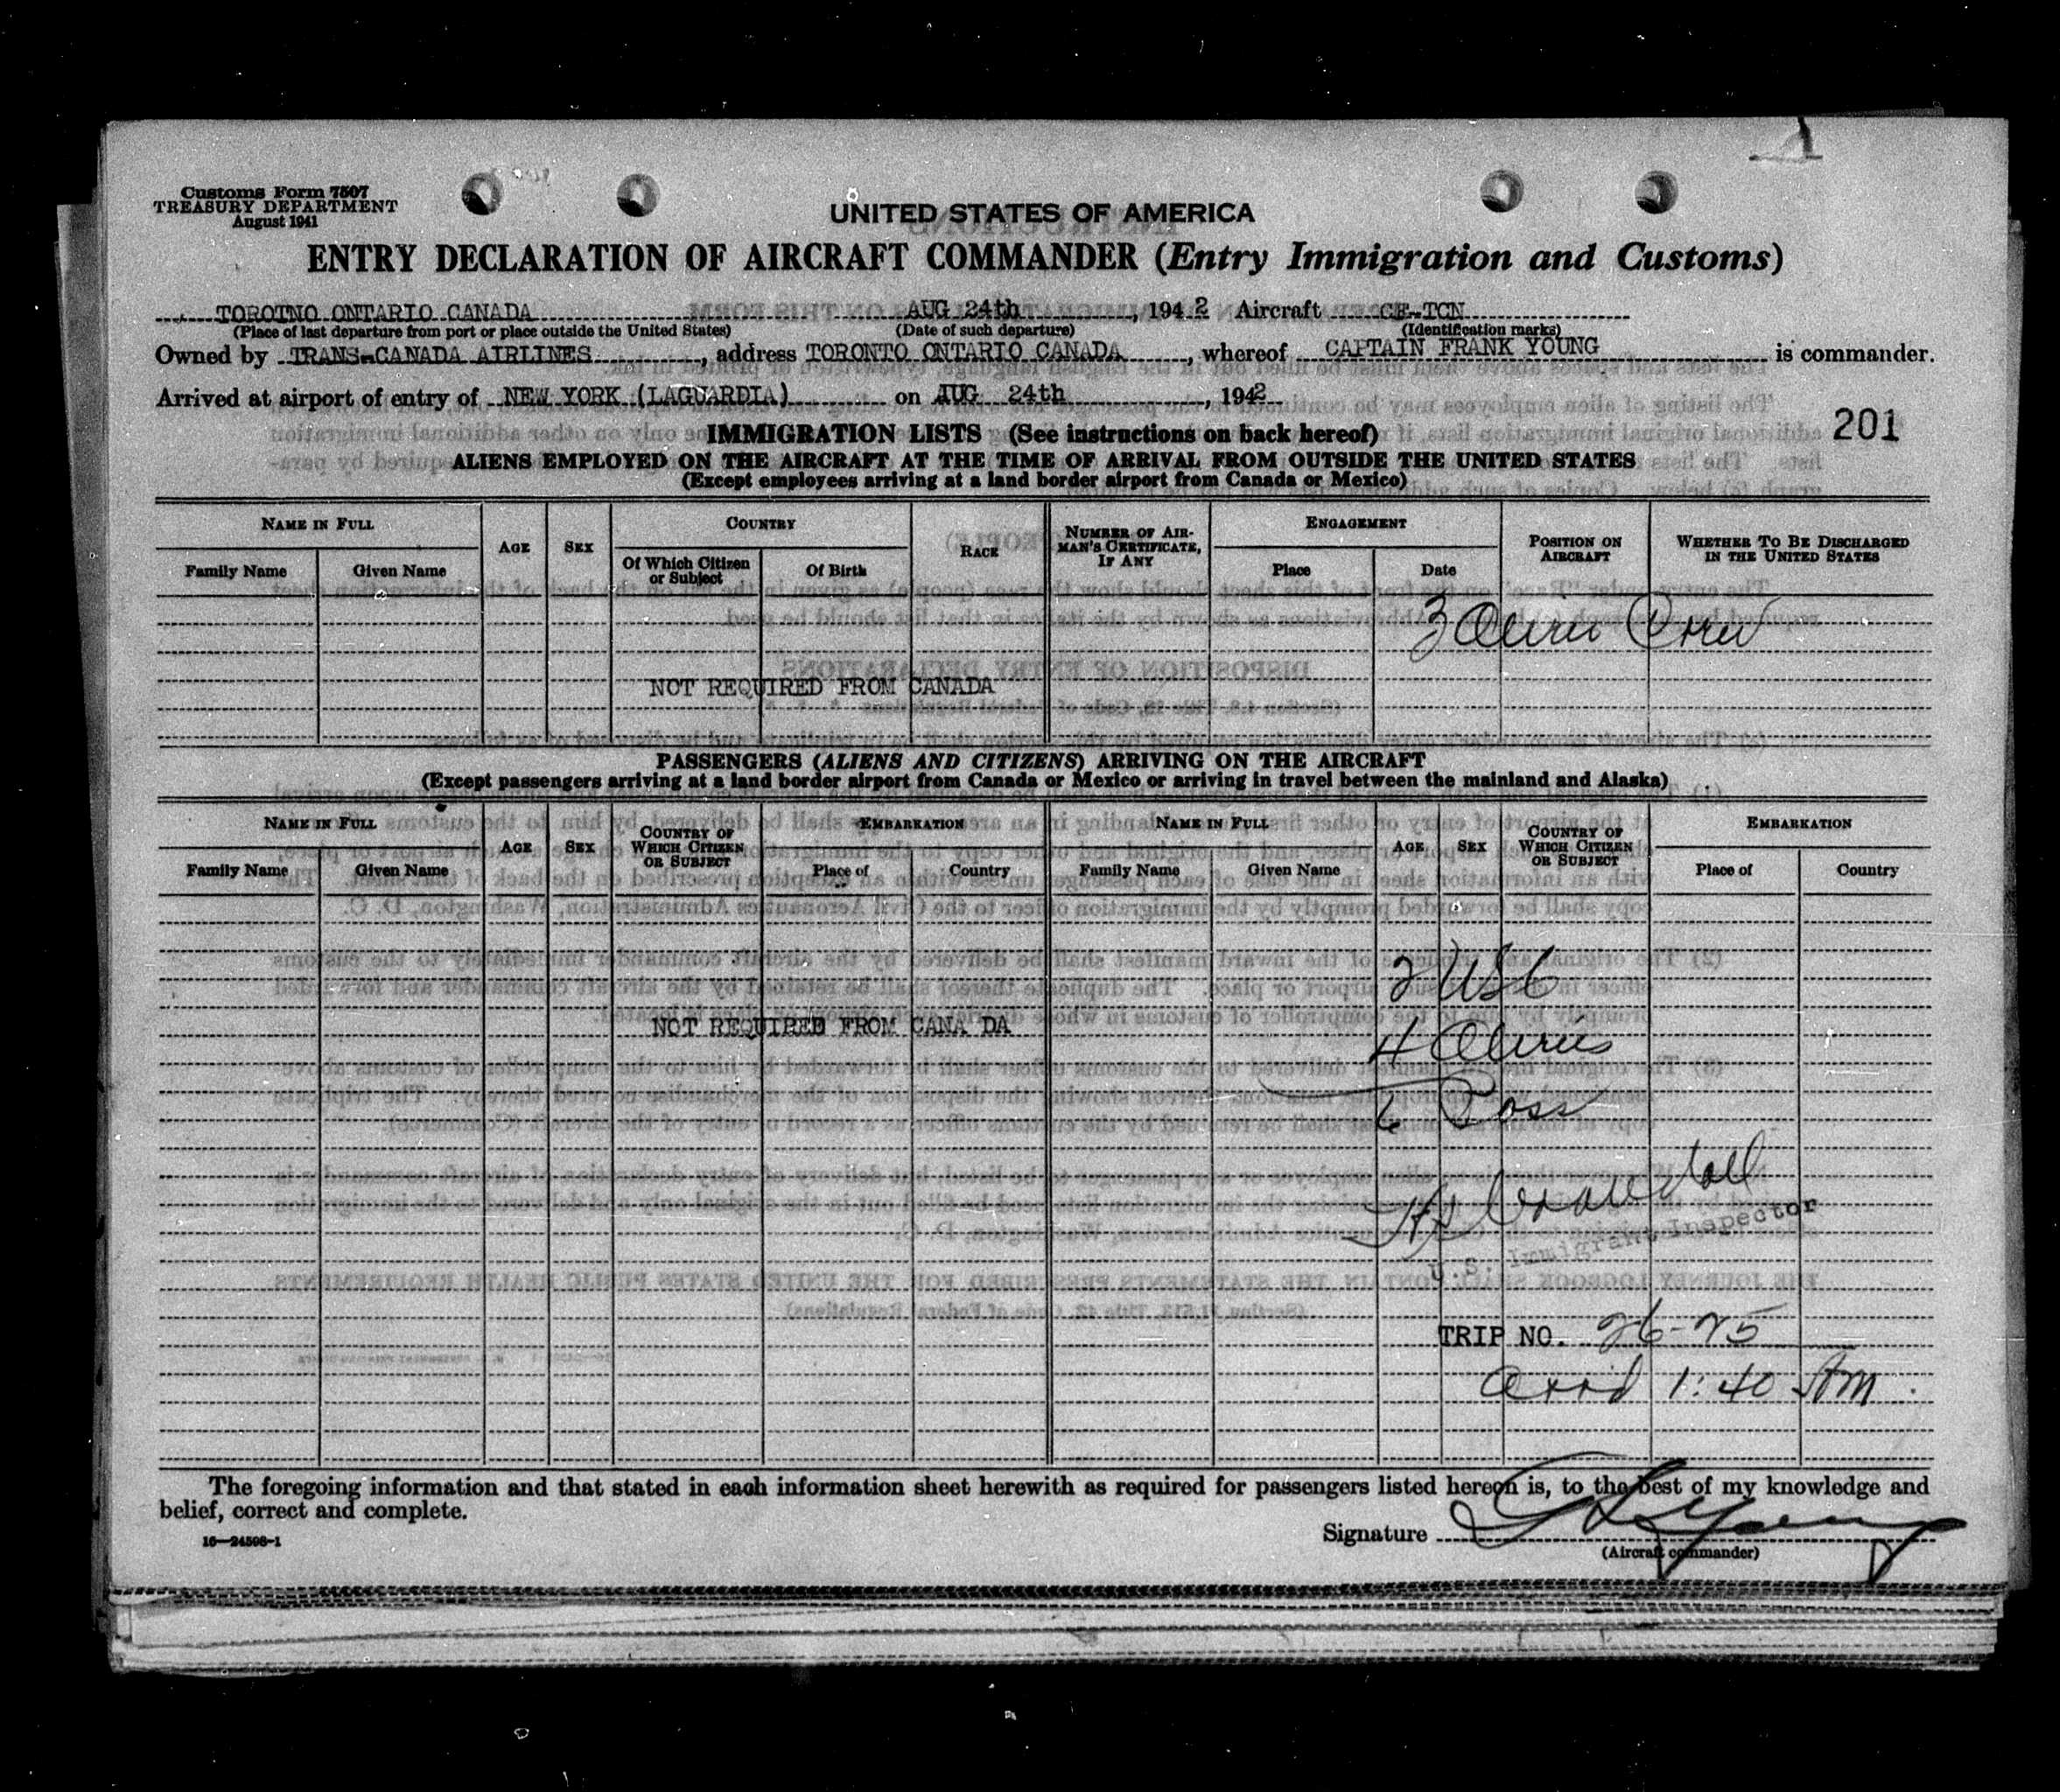 Customs Form 7507
TREASURY DEPARTMENT
August 1941
UNITED STATES OF AMERICA
ENTRY DECLARATION OF AIRCRAFT COMMANDER (Entry Immigration and Customs)
TOROTNO ONTARIO CANADA AUG 24th, 1942 Aircraft CF-TCN
(Place of last departure from port or place outside the United States) (Date of such departure) (Identification marks)
Owned by TRANS-CANADA AIRLINES, address TORONTO ONTARIO CANADA, whereof CAPTAIN FRANK YOUNG is commander.
Arrived at airport of entry of NEW YORK (LAGUARDIA) on AUG 24th, 1942
201
IMMIGRATION LISTS (See instructions on back hereof)
ALIENS EMPLOYED ON THE AIRCRAFT AT THE TIME OF ARRIVAL FROM OUTSIDE THE UNITED STATES
(Except employees arriving at a land border airport from Canada or Mexico)
NAME IN FULL AGE SEX COUNTRY RACE NUMBER OF AIRMAN'S CERTIFICATE, IF ANY ENGAGEMENT POSITION ON AIRCRAFT WHETHER TO BE DISCHARGED IN THE UNITED STATES
Family Name Given Name Of Which Citizen or Subject Of Birth Place Date
3 Alien Crew
NOT REQUIRED FROM CANADA
PASSENGERS (ALIENS AND CITIZENS) ARRIVING ON THE AIRCRAFT
(Except passengers arriving at a land border airport from Canada or Mexico or arriving in travel between the mainland and Alaska)
NAME IN FULL AGE SEX COUNTRY OF WHICH CITIZEN OR SUBJECT EMBARKATION NAME IN FULL AGE SEX COUNTRY OF WHICH CITIZEN OR SUBJECT EMBARKATION
Family Name Given Name Place of Country Family Name Given Name Place of Country
2 USC
NOT REQUIRED FROM CANA DA
4 Aliens
6 Pass
Crandall
U.S. Immigrant Inspector
TRIP NO. 26-25
Arrd 1:40 AM
The foregoing information and that stated in each information sheet herewith as required for passengers listed hereon is, to the best of my knowledge and
belief, correct and complete.
16—24598-1
Signature Young
(Aircraft commander)